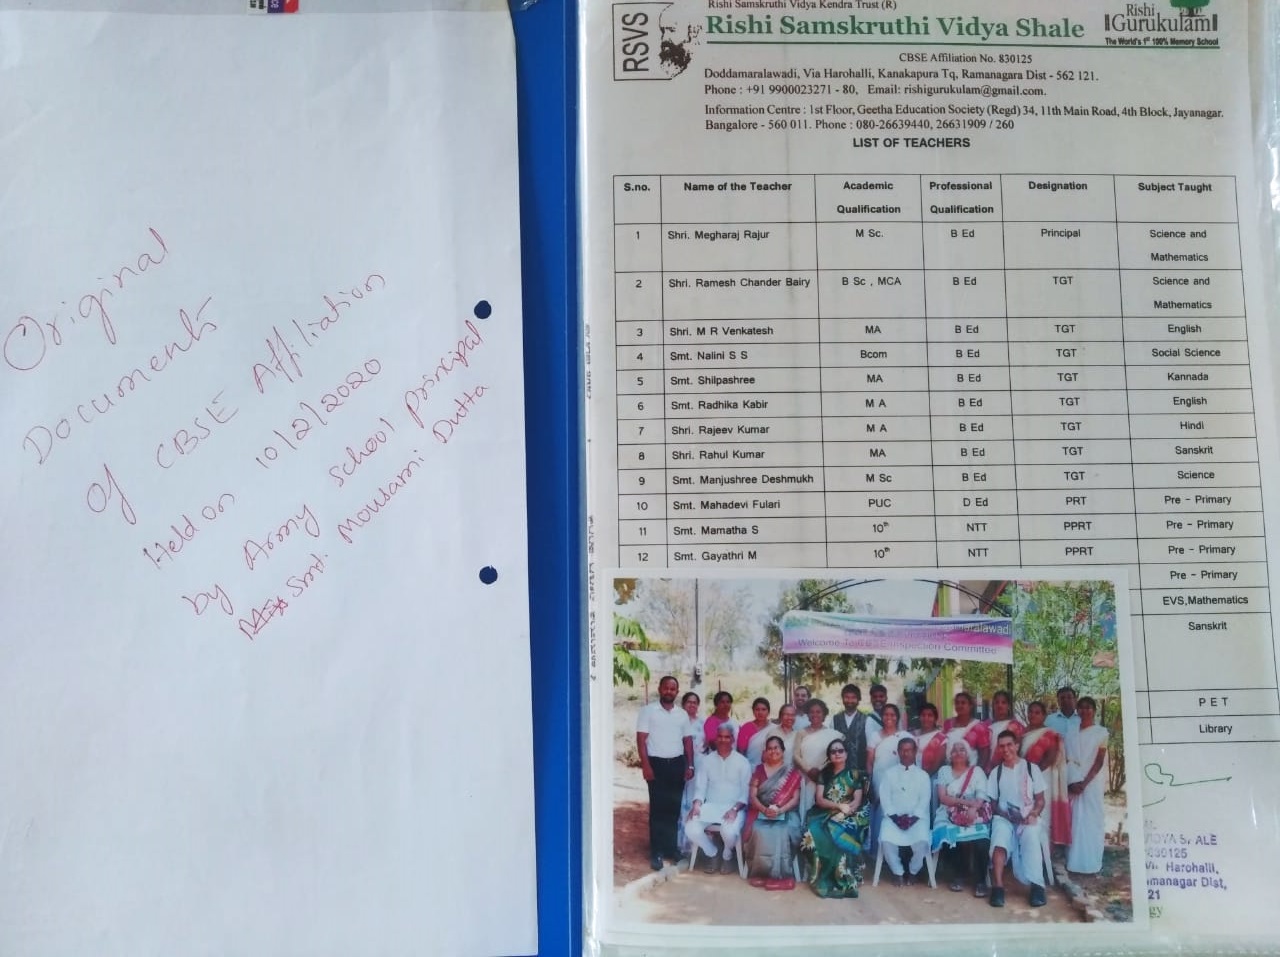 Original
Documents
of CBSE Affiliation
Held on 10/2/2020
by Army School principal
Smt. Mousami Dutta
RSVS
Rishi Samskruthi Vidya Kendra Trust (R)
Rishi Samskruthi Vidya Shale
Rishi
Gurukulam
The World's 1st 100% Memory School
CBSE Affiliation No. 830125
Doddamaralawadi, Via Harohalli, Kanakapura Tq, Ramanagara Dist - 562 121.
Phone : +91 9900023271 - 80, Email: rishigurukulam@gmail.com.
Information Centre : 1st Floor, Geetha Education Society (Regd) 34, 11th Main Road, 4th Block, Jayanagar.
Bangalore - 560 011. Phone : 080-26639440, 26631909 / 260
LIST OF TEACHERS
S.no. Name of the Teacher Academic Qualification Professional Qualification Designation Subject Taught
1 Shri. Megharaj Rajur M Sc. B Ed Principal Science and Mathematics
2 Shri. Ramesh Chander Bairy B Sc , MCA B Ed TGT Science and Mathematics
3 Shri. M R Venkatesh MA B Ed TGT English
4 Smt. Nalini S S Bcom B Ed TGT Social Science
5 Smt. Shilpashree MA B Ed TGT Kannada
6 Smt. Radhika Kabir M A B Ed TGT English
7 Shri. Rajeev Kumar M A B Ed TGT Hindi
8 Shri. Rahul Kumar MA B Ed TGT Sanskrit
9 Smt. Manjushree Deshmukh M Sc B Ed TGT Science
10 Smt. Mahadevi Fulari PUC D Ed PRT Pre - Primary
11 Smt. Mamatha S 10th NTT PPRT Pre - Primary
12 Smt. Gayathri M 10th NTT PPRT Pre - Primary
Pre - Primary
EVS,Mathematics
Sanskrit
P E T
Library
maralawadi
Welcome To Inspection Committee
ALE
830125
Harohalli,
manager Dist,
21
gy